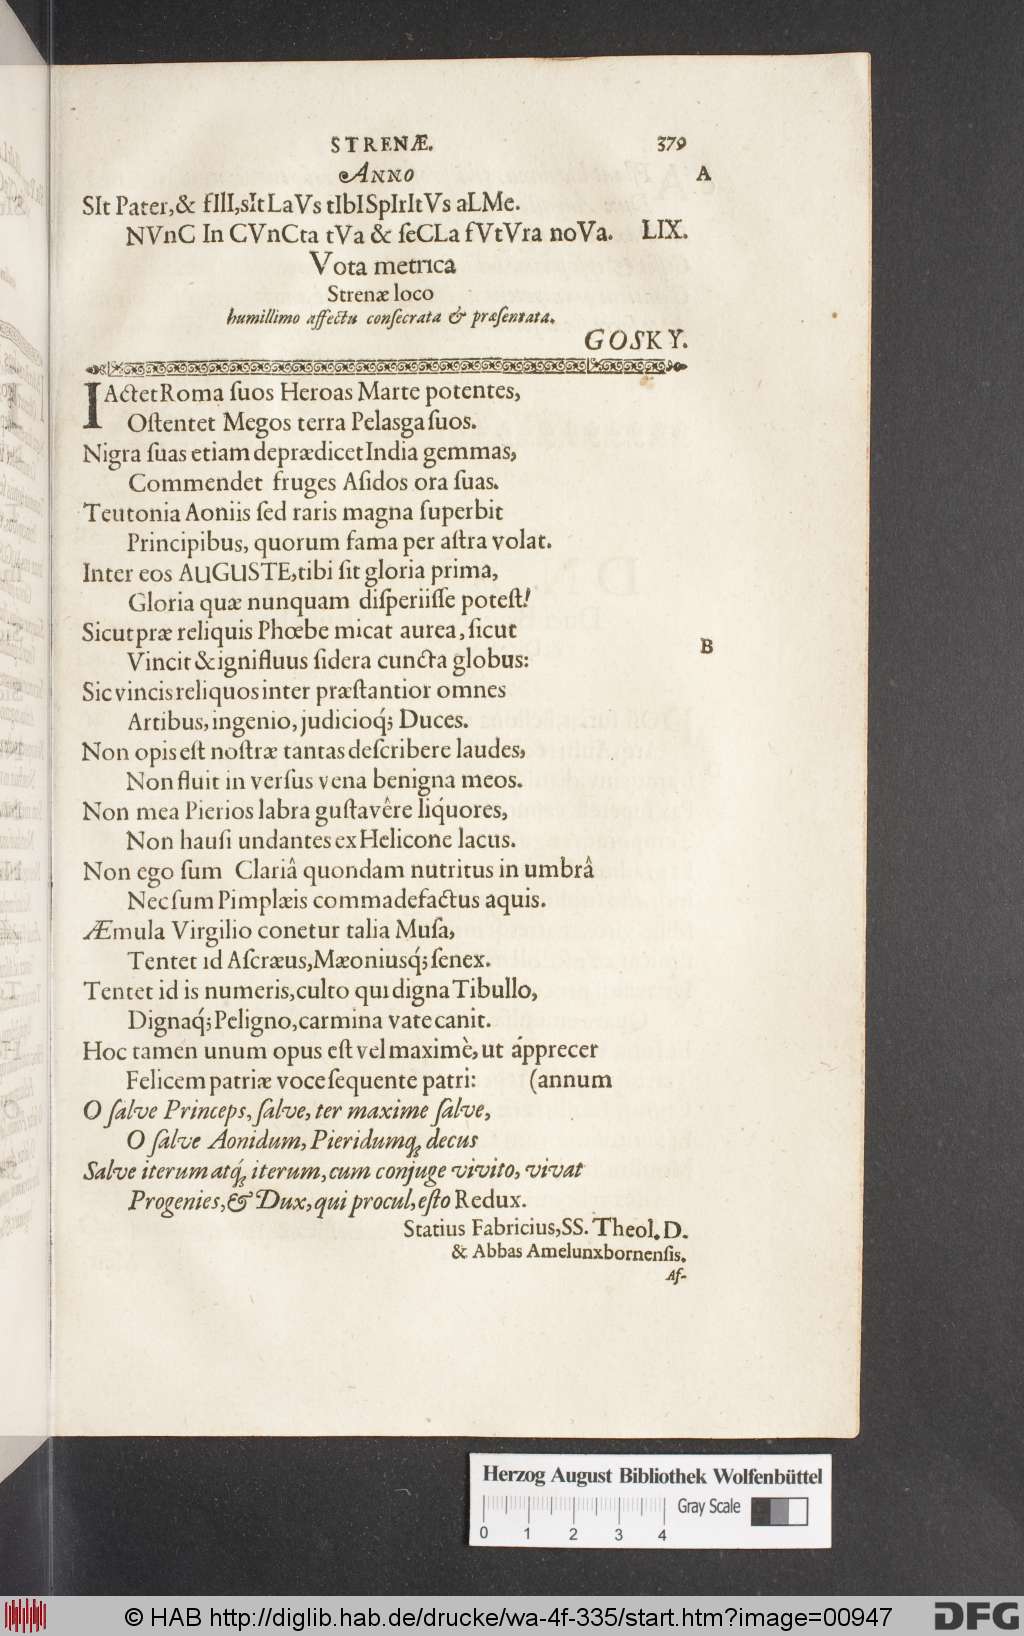 STRENÆ. 379
ANNO A
SIt Pater,& fIlI,sIt LaVs tIbI SpIrItVs aLMe.
NVnC In CVnCta tVa & ſeCLa fVtVra noVa. LIX.
Vota metrica
Strenæ loco
humillimo affectu conſecrata & præſentata.
GOSKY.
IActet Roma ſuos Heroas Marte potentes,
Oſtentet Megos terra Pelasga ſuos.
Nigra ſuas etiam deprædicet India gemmas,
Commendet fruges Aſidos ora ſuas.
Teutonia Aoniis ſed raris magna ſuperbit
Principibus, quorum fama per aſtra volat.
Inter eos AUGUSTE, tibi ſit gloria prima,
Gloria quæ nunquam diſperiiſſe poteſt!
Sicut præ reliquis Phœbe micat aurea, ſicut
Vincit & ignifluus ſidera cuncta globus: B
Sic vincis reliquos inter præſtantior omnes
Artibus, ingenio, judicioq́; Duces.
Non opis eſt noſtræ tantas deſcribere laudes,
Non fluit in verſus vena benigna meos.
Non mea Pierios labra guſtavêre liq́uores,
Non hauſi undantes ex Helicone lacus.
Non ego ſum Clariâ quondam nutritus in umbrâ
Nec ſum Pimplæis commadefactus aquis.
Æmula Virgilio conetur talia Muſa,
Tentet id Aſcræus, Mæoniusq́; ſenex.
Tentet id is numeris, culto qui digna Tibullo,
Dignaq́; Peligno, carmina vate canit.
Hoc tamen unum opus eſt vel maximè, ut ápprecer
Felicem patriæ voce ſequente patri: (annum
O ſalve Princeps, ſalve, ter maxime ſalve,
O ſalve Aonidum, Pieridumq; decus
Salve iterum atq́; iterum, cum conjuge vivito, vivat
Progenies, & Dux, qui procul, eſto Redux.
Statius Fabricius, SS. Theol. D.
& Abbas Amelunxbornenſis.
Af-
Herzog August Bibliothek Wolfenbüttel
Gray Scale
0 1 2 3 4
© HAB http://diglib.hab.de/drucke/wa-4f-335/start.htm?image=00947 DFG